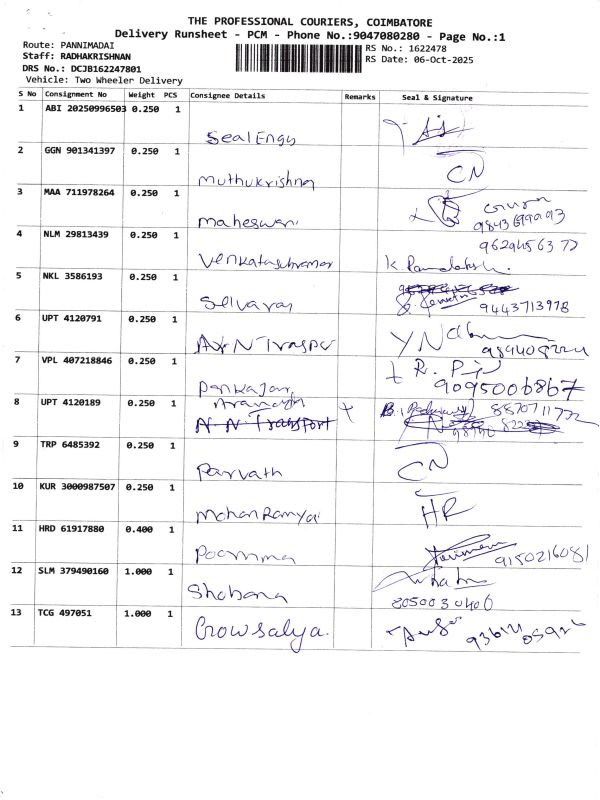 THE PROFESSIONAL COURIERS, COIMBATORE
Delivery Runsheet - PCM - Phone No.:9047080280 - Page No.:1
Route: PANNIMADAI
RS No.: 1622478
Staff: RADHAKRISHNAN
RS Date: 06-Oct-2025
DRS No.: DCJB162247801
Vehicle: Two Wheeler Delivery
S No Consignment No Weight PCS Consignee Details Remarks Seal & Signature
1 ABI 20250996503 0.250 1
Seal Engy
2 GGN 901341397 0.250 1
muthukrishna CN
3 MAA 711978264 0.250 1
maheswari 9843699993
4 NLM 29813439 0.250 1 9629456377
Venkatasubramar K.
5 NKL 3586193 0.250 1
Selvaraj 9443713978
6 UPT 4120791 0.250 1
7 VPL 407218846 0.250 1 R.
Pankajam 9095006867
8 UPT 4120189 0.250 1 Aranayh B. 8870711772
N N Transport
9 TRP 6485392 0.250 1
Parvath CN
10 KUR 3000987507 0.250 1
mohan Ramya HR
11 HRD 61917880 0.400 1
Poomma 9150216081
12 SLM 379490160 1.000 1
Shobana 8050030406
13 TCG 497051 1.000 1
Gowsalya.